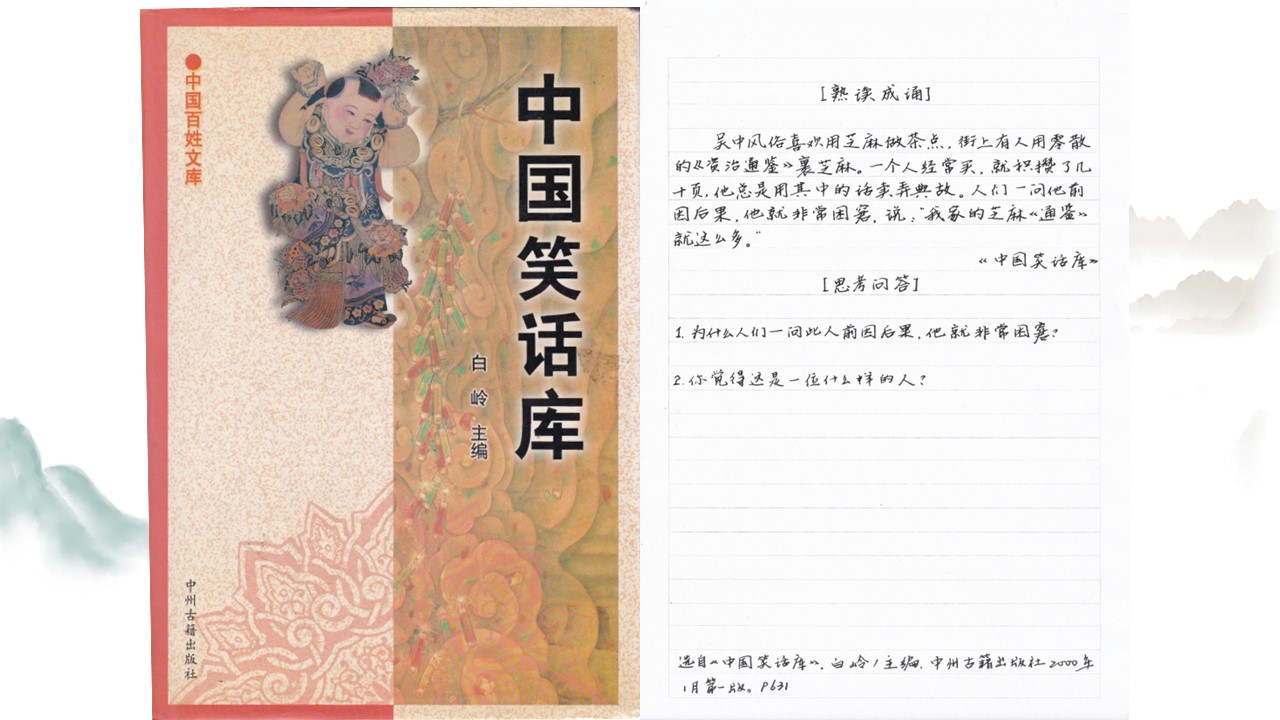 ●中国百姓文库
中国笑话库
白岭 主编
中州古籍出版社
[熟读成诵]
吴中风俗喜欢用芝麻做茶点,街上有人用零散
的《资治通鉴》裹芝麻。一个人经常买,就积攒了几
十页,他总是用其中的话卖弄典故。人们一问他前
因后果,他就非常困窘,说:“我家的芝麻《通鉴》
就这么多。”
《中国笑话库》
[思考问答]
1.为什么人们一问此人前因后果,他就非常困窘?
2.你觉得这是一位什么样的人?
选自《中国笑话库》,白岭/主编.中州古籍出版社2000年
1月第一版。P631